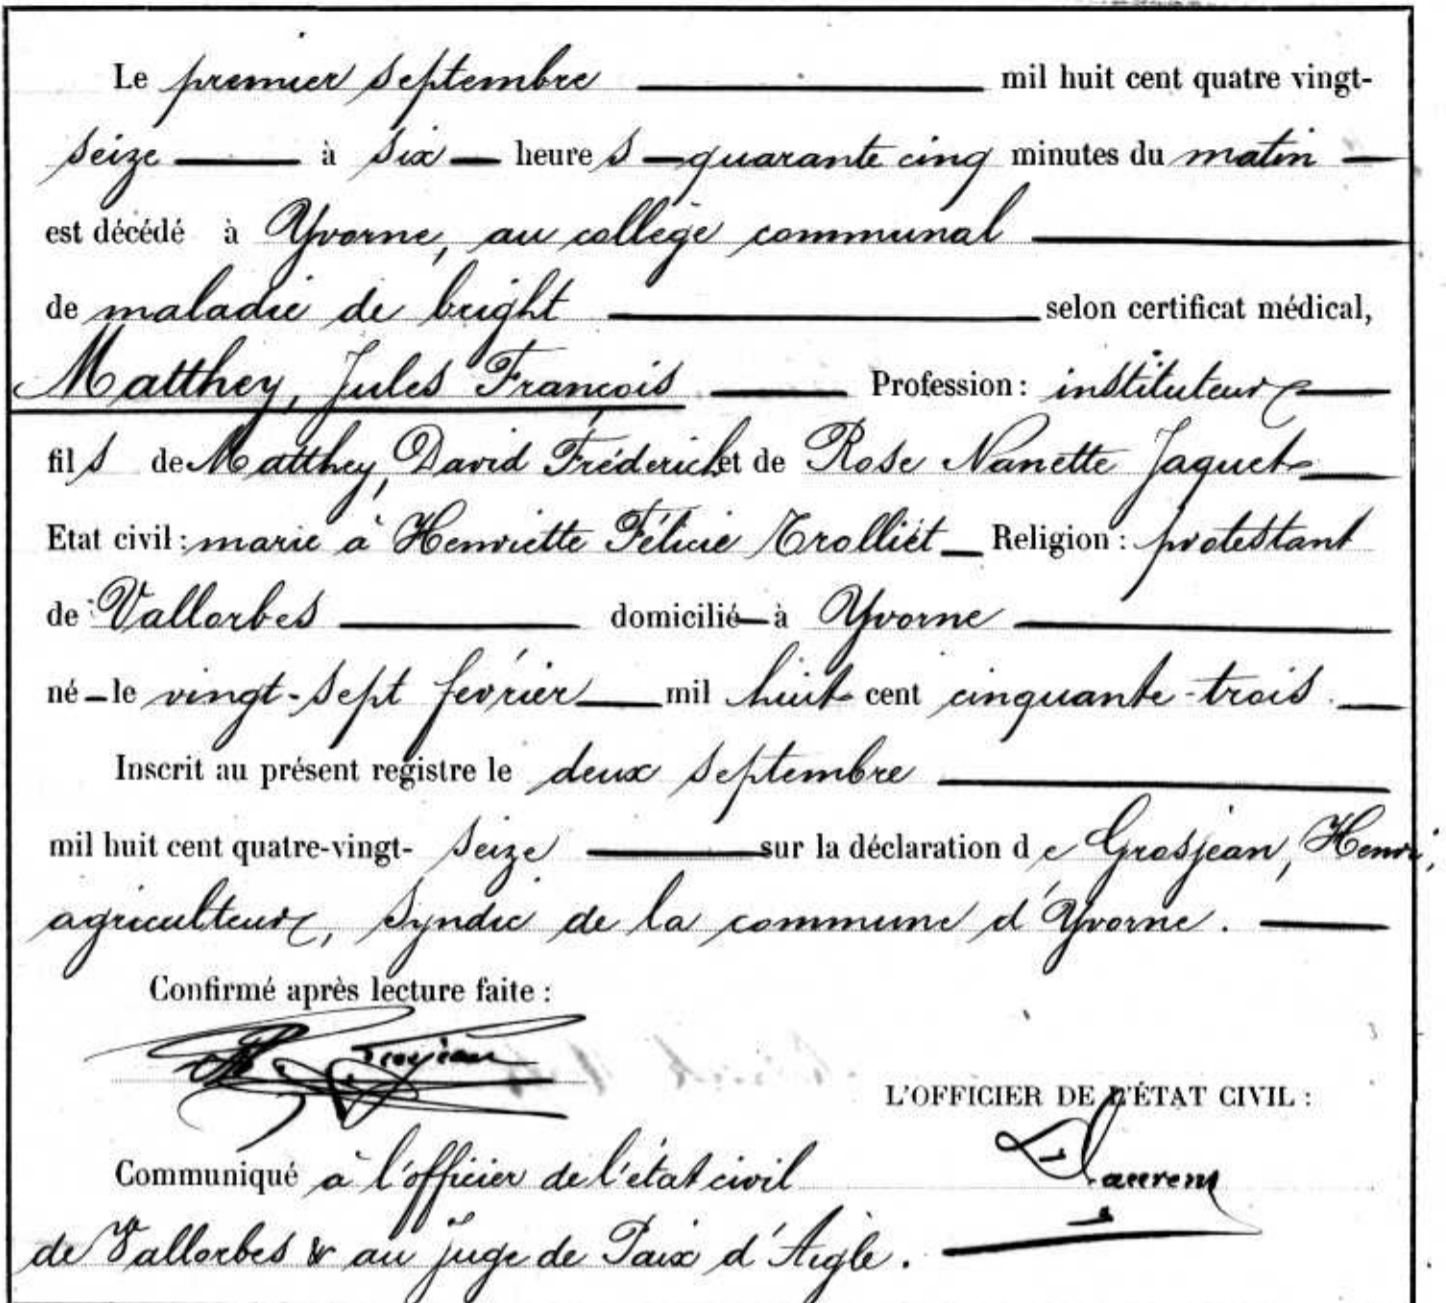 Le premier septembre mil huit cent quatre vingt-
seize à six heures quarante cinq minutes du matin
est décédé à Yvorne, au collège communal
de maladie de bright selon certificat médical,
Matthey, Jules François Profession : instituteur
fils de Matthey, David Fréderich et de Rose Nanette Jaquet
Etat civil : marié à Henriette Félicie Trolliet Religion : protestant
de Vallorbes domicilié à Yvorne
né le vingt-sept février mil huit cent cinquante-trois.
Inscrit au présent registre le deux septembre
mil huit cent quatre-vingt- seize sur la déclaration de Grosjean, Henri,
agriculteur, syndic de la commune d'Yvorne.
Confirmé après lecture faite :
Grosjean
L'OFFICIER DE L'ÉTAT CIVIL :
Communiqué à l'officier de l'état civil
Laurent
de Vallorbes & au juge de Paix d'Aigle.